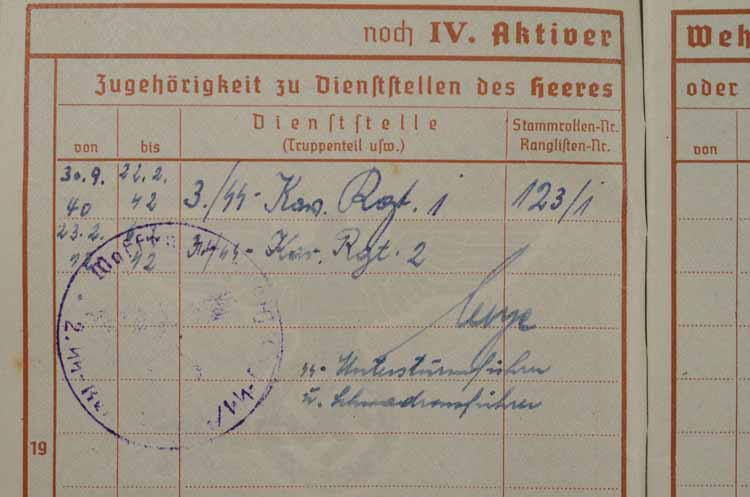 noch IV. Aktiver
Zugehörigkeit zu Dienststellen des Heeres
von bis Dienststelle (Truppenteil usw.) Stammrollen-Nr. Ranglisten-Nr.
30.9. 40 22.2. 42 3./SS- Kav. Rgt. 1 123/1
23.2. 42 SS- Kav. Rgt. 2
SS- Untersturmführer
u. Schwadronsführer
Waffen
2. SS-
19
Weh
oder
von